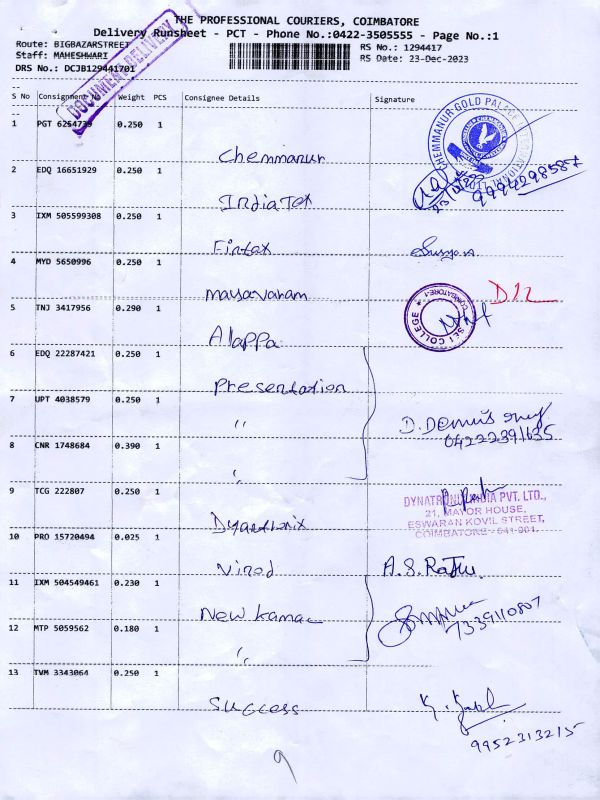 THE PROFESSIONAL COURIERS, COIMBATORE
Delivery Runsheet - PCT - Phone No.:0422-3505555 - Page No.:1
Route: BIGBAZARSTREET
RS No.: 1294417
Staff: MAHESHWARI
RS Date: 23-Dec-2023
DRS No.: DCJB129441701
DOCUMENT DELIVERY
S No Consignment No Weight PCS Consignee Details Signature
1 PGT 0.250 1 Chemmanur
CHEMMANUR GOLD PALACE INTERNATIONAL
9994298587
2 EDQ 16651929 0.250 1 IndiaTex
3 IXM 505599308 0.250 1 Fintax
4 MYD 5650996 0.250 1 mayavaram
D12
5 TNJ 3417956 0.290 1 Alappa
SEI COLLEGE COIMBATORE-1
6 EDQ 22287421 0.250 1 Presentation
7 UPT 4038579 0.250 1 "
04222391635
8 CNR 1748684 0.390 1 "
9 TCG 222807 0.250 1
DYNATRONIX INDIA PVT. LTD.,
21, MAYOR HOUSE,
ESWARAN KOVIL STREET,
COIMBATORE - 641 001.
10 PRO 15720494 0.025 1 Vinod A.S. Raju.
11 IXM 504549461 0.230 1 New
7339110807
12 MTP 5059562 0.180 1 "
13 TVM 3343064 0.250 1 Success
9952313215
9